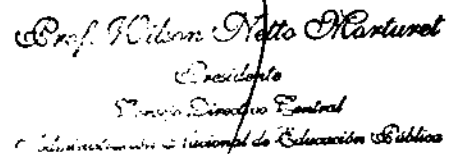 Prof. Wilson Netto Marturet
Presidente
Consejo Directivo Central
Administración Nacional de Educación Pública